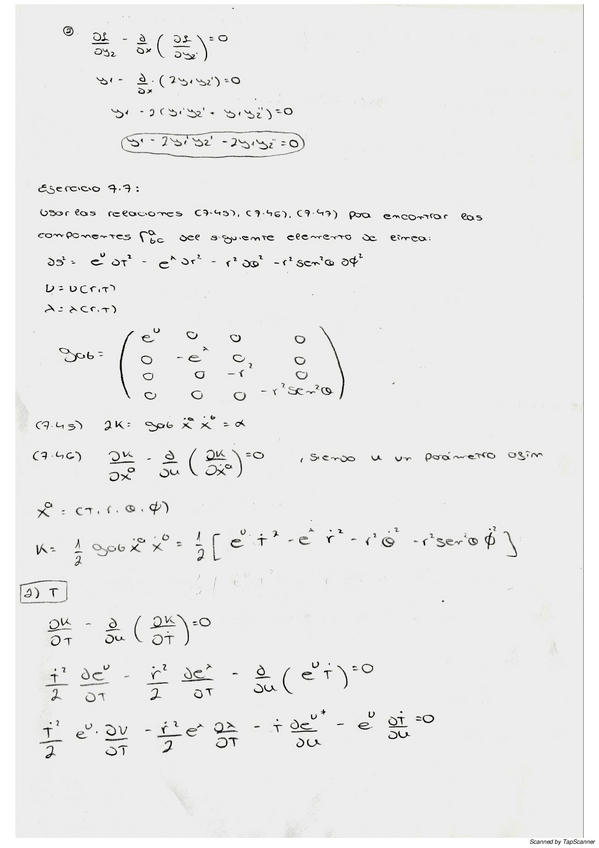 ②
∂f/∂y₂ - d/dx (∂f/∂y₂') = 0
y₁ - d/dx (2y₁y₂') = 0
y₁ - 2(y₁'y₂' + y₁y₂'') = 0
y₁ - 2y₁'y₂' - 2y₁y₂'' = 0
Ejercicio 7.7:
Usar las relaciones (7.45), (7.46), (7.47) para encontrar las
componentes Γᵃbc del siguiente elemento de línea:
ds² = e^ν dT² - e^λ dr² - r² dθ² - r² sen²θ dφ²
ν = ν(r,T)
λ = λ(r,T)
gab = ( e^ν 0 0 0
0 -e^λ 0 0
0 0 -r² 0
0 0 0 -r² sen²θ )
(7.45) 2K = gab ẋᵃ ẋᵇ = α
(7.46) ∂K/∂xᵃ - d/du (∂K/∂ẋᵃ) = 0 , siendo u un parámetro afín
xᵃ = (T, r, θ, φ)
K = 1/2 gab ẋᵃ ẋᵇ = 1/2 [ e^ν Ṫ² - e^λ ṙ² - r² θ̇² - r² sen²θ φ̇² ]
a) T
∂K/∂T - d/du (∂K/∂Ṫ) = 0
Ṫ²/2 ∂e^ν/∂T - ṙ²/2 ∂e^λ/∂T - d/du (e^ν Ṫ) = 0
Ṫ²/2 e^ν · ∂ν/∂T - ṙ²/2 e^λ ∂λ/∂T - Ṫ de^ν*/du - e^ν dṪ/du = 0
Scanned by TapScanner